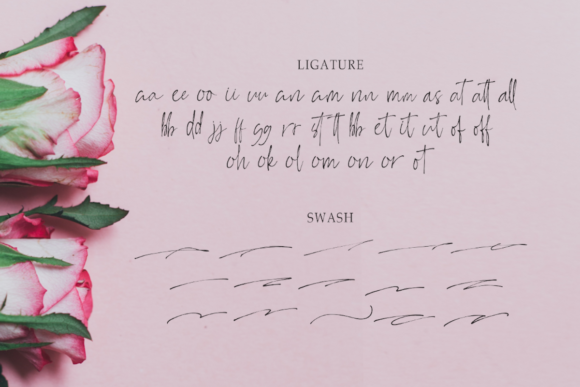 LIGATURE
aa ee oo ii uu an am nn mm as at att all
bb dd jj ff gg rr st tt et it ut of off
oh ok ol om on or ot
SWASH